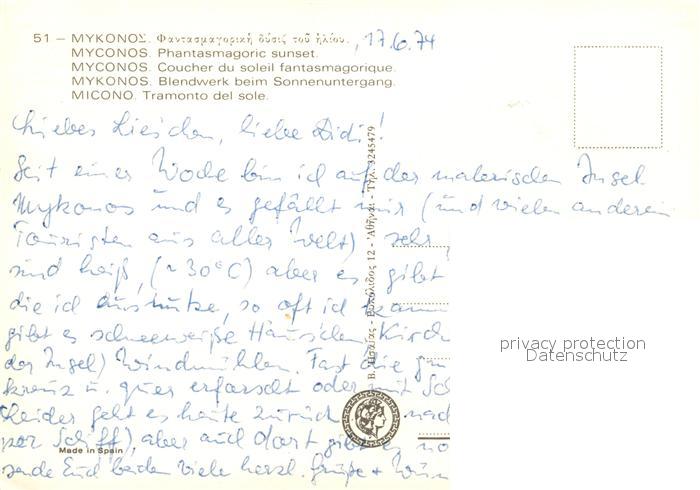 51 – ΜΥΚΟΝΟΣ. Φαντασμαγορική δύσις τοῦ ἡλίου.
MYCONOS. Phantasmagoric sunset.
MYCONOS. Coucher du soleil fantasmagorique.
MYKONOS. Blendwerk beim Sonnenuntergang.
MICONO. Tramonto del sole.
17.6.74
Liebes Lieschen, liebe Didi!
Seit einer Woche bin ich auf der malerischen Insel
Mykonos und es gefällt mir (und vielen anderen
Touristen aus aller Welt) sehr
sind heiß, (~30°C) aber es gibt
die ich ausnutze, so oft ich kann
gibt es schneeweiße Häuschen, Kirch
der Insel) Windmühlen. Fast die
kreuz u. quer erforscht oder mit Sch
Leider geht es heute zurück nach
per Schiff) aber auch dort gibt es no
sende Euch beiden viele herzl. Grüße +
12 - Ἀθῆναι - Τηλ. 3245479
privacy protection
Datenschutz
Made in Spain